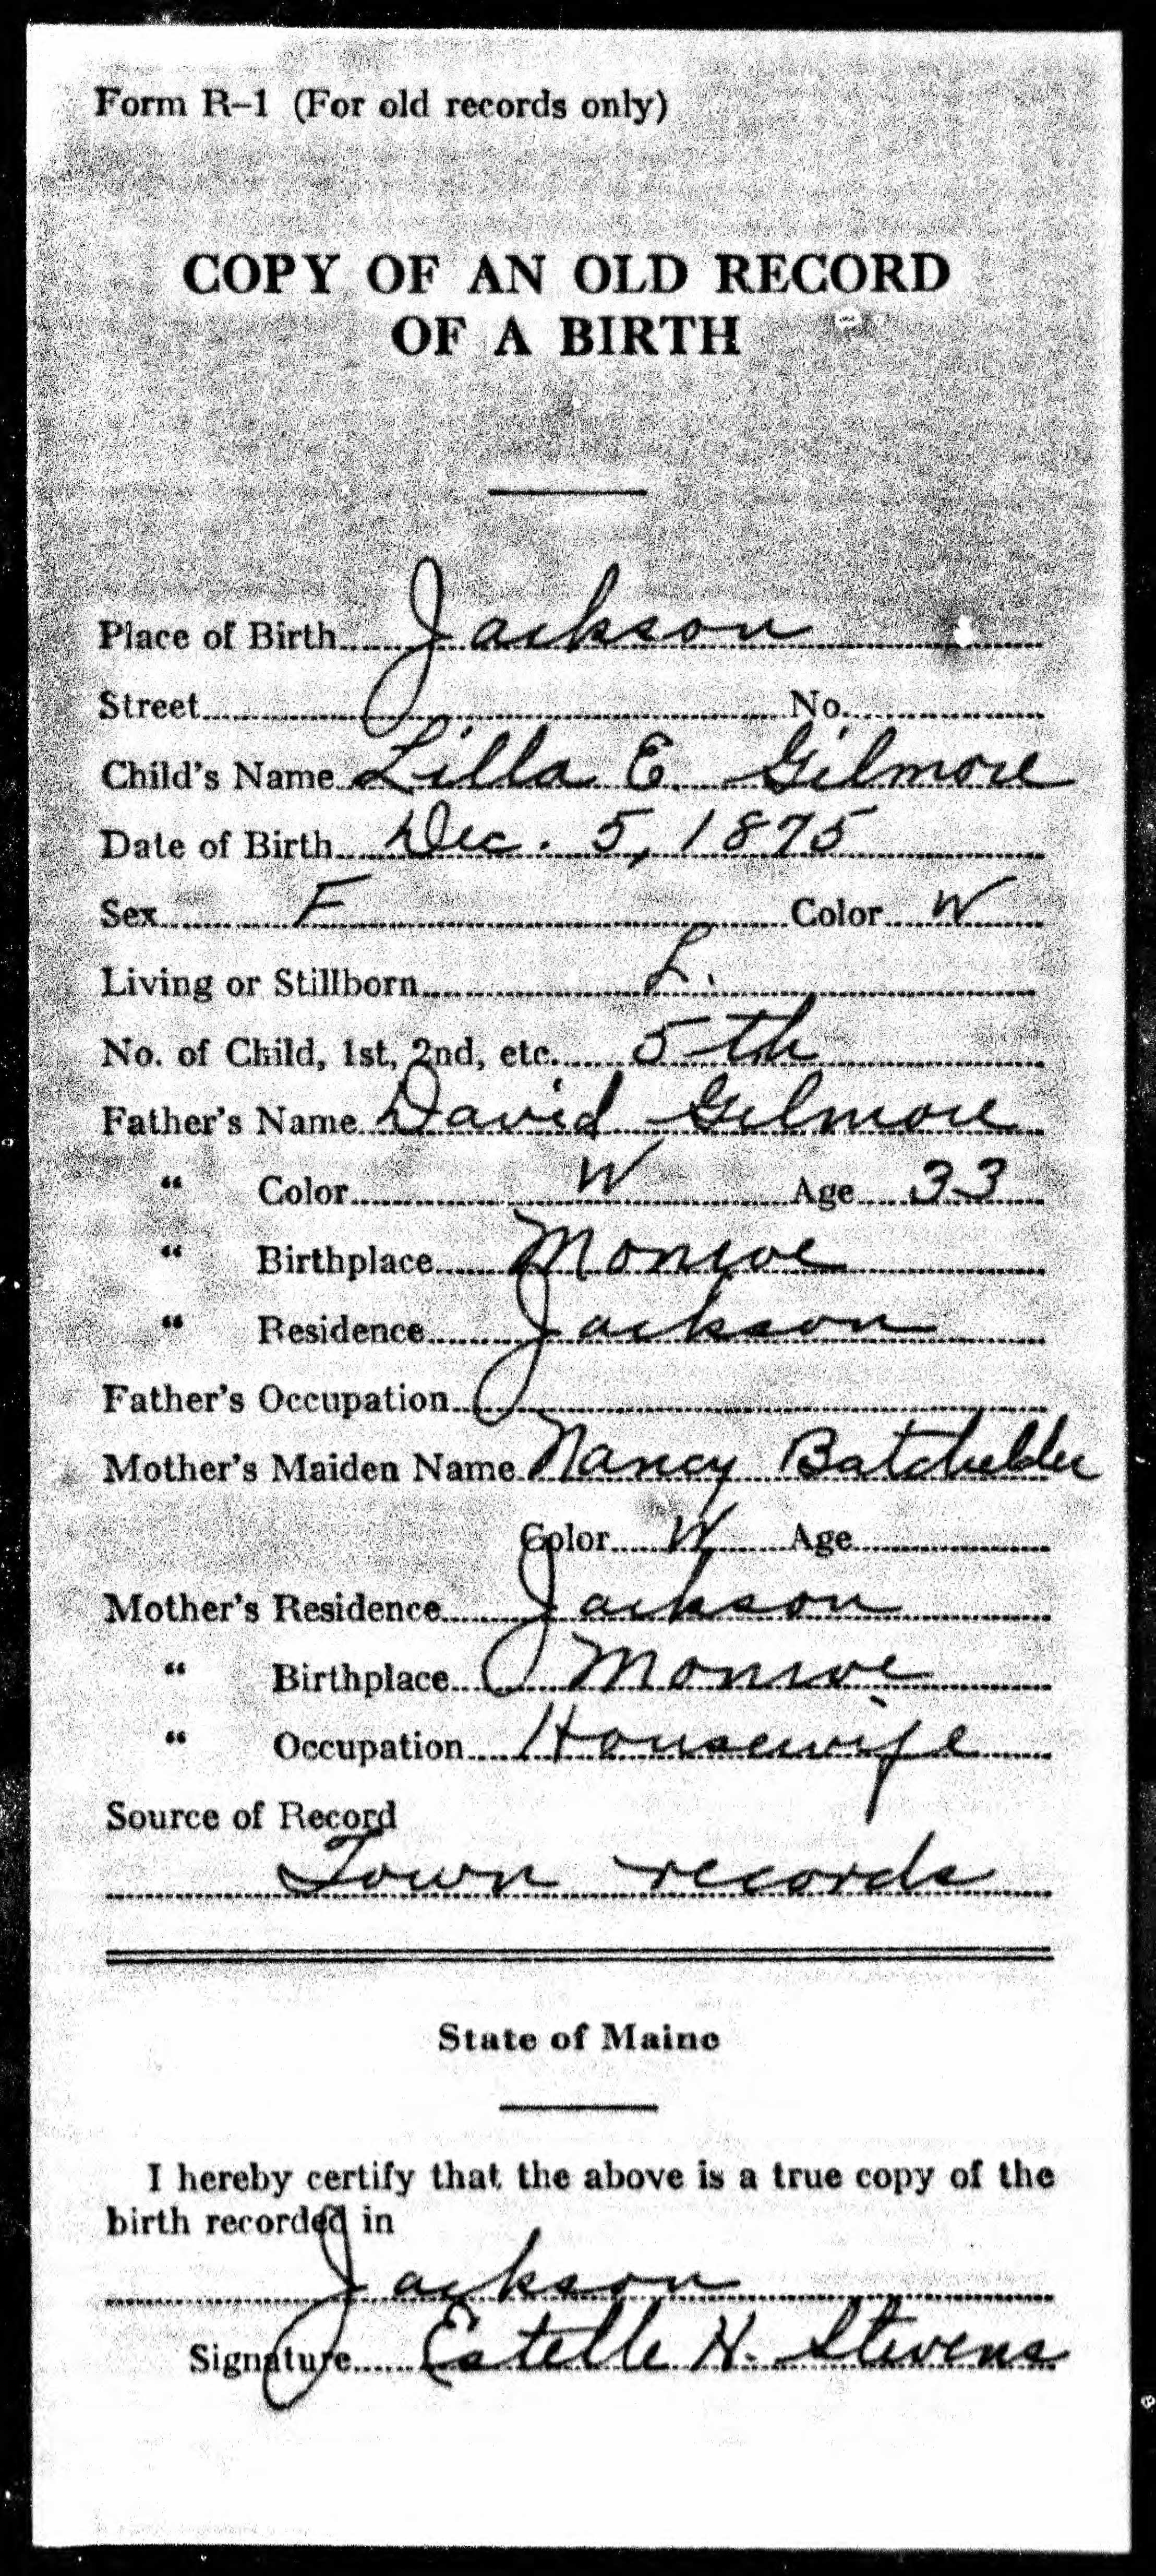 Form R-1 (For old records only)
COPY OF AN OLD RECORD
OF A BIRTH
Place of Birth Jackson
Street No.
Child's Name Lilla E. Gilmore
Date of Birth Dec. 5, 1875
Sex F Color W
Living or Stillborn L.
No. of Child, 1st, 2nd, etc. 5th
Father's Name David Gilmore
" Color W Age 33
" Birthplace Monroe
" Residence Jackson
Father's Occupation
Mother's Maiden Name Nancy Batchelder
Color W Age
Mother's Residence Jackson
" Birthplace Monroe
" Occupation Housewife
Source of Record
Town records
State of Maine
I hereby certify that the above is a true copy of the
birth recorded in
Jackson
Signature Estelle H. Stevens